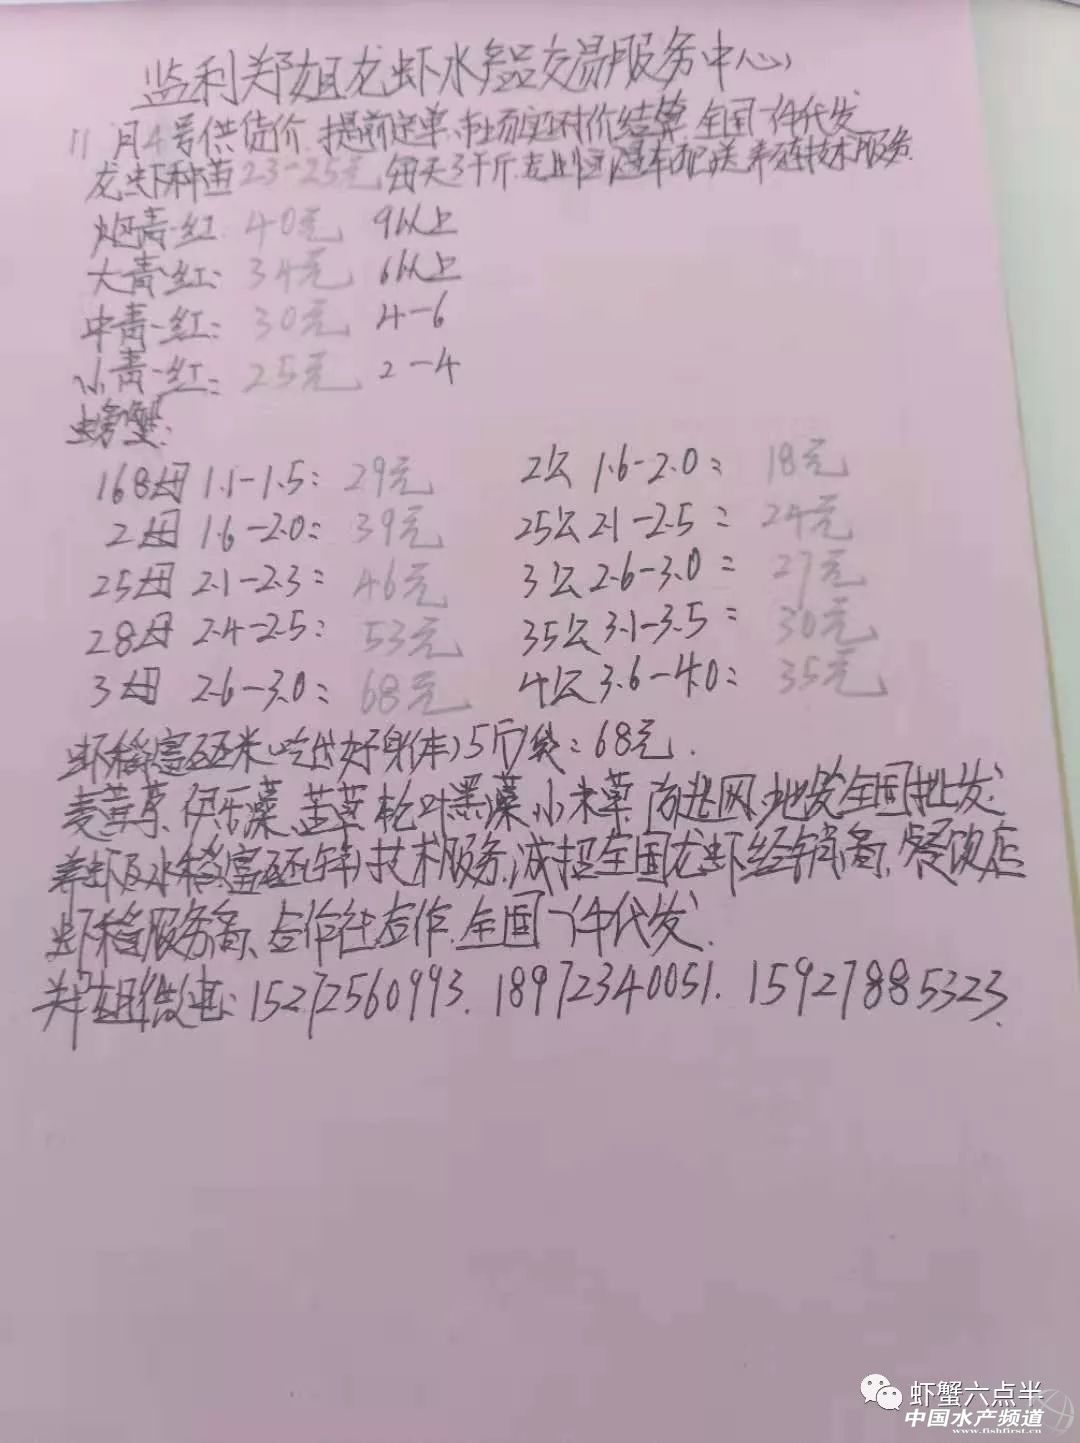 监利郑姐龙虾水产品交易服务中心
11月4号供货价.提前定单、市场实时价结算.全国一件代发
龙虾种苗23-25元每天3千斤.专业恒温车配送养殖技术服务.
炮青-红: 40元 9以上
大青-红: 34元 6以上
中青-红: 30元 4-6
小青-红: 25元 2-4
螃蟹:
168母 1.1-1.5: 29元 2公 1.6-2.0: 18元
2母 1.6-2.0: 39元 25公 2.1-2.5: 24元
25母 2.1-2.3: 46元 3公 2.6-3.0: 27元
28母 2.4-2.5: 53元 35公 3.1-3.5: 30元
3母 2.6-3.0: 68元 4公 3.6-4.0: 35元
虾稻富硒米(吃出好身体)5斤/袋:68元.
麦黄草、伊乐藻、苦草、轮叶黑藻、小米草 网、地笼全国批发、
养虾及水稻富硒(锌)技术服务,诚招全国龙虾经销商、餐饮店
虾稻服务商、合作社合作.全国一件代发.
郑姐微电:15272560993. 18972340051. 15927885323.
虾蟹六点半
中国水产频道
www.fishfirst.cn